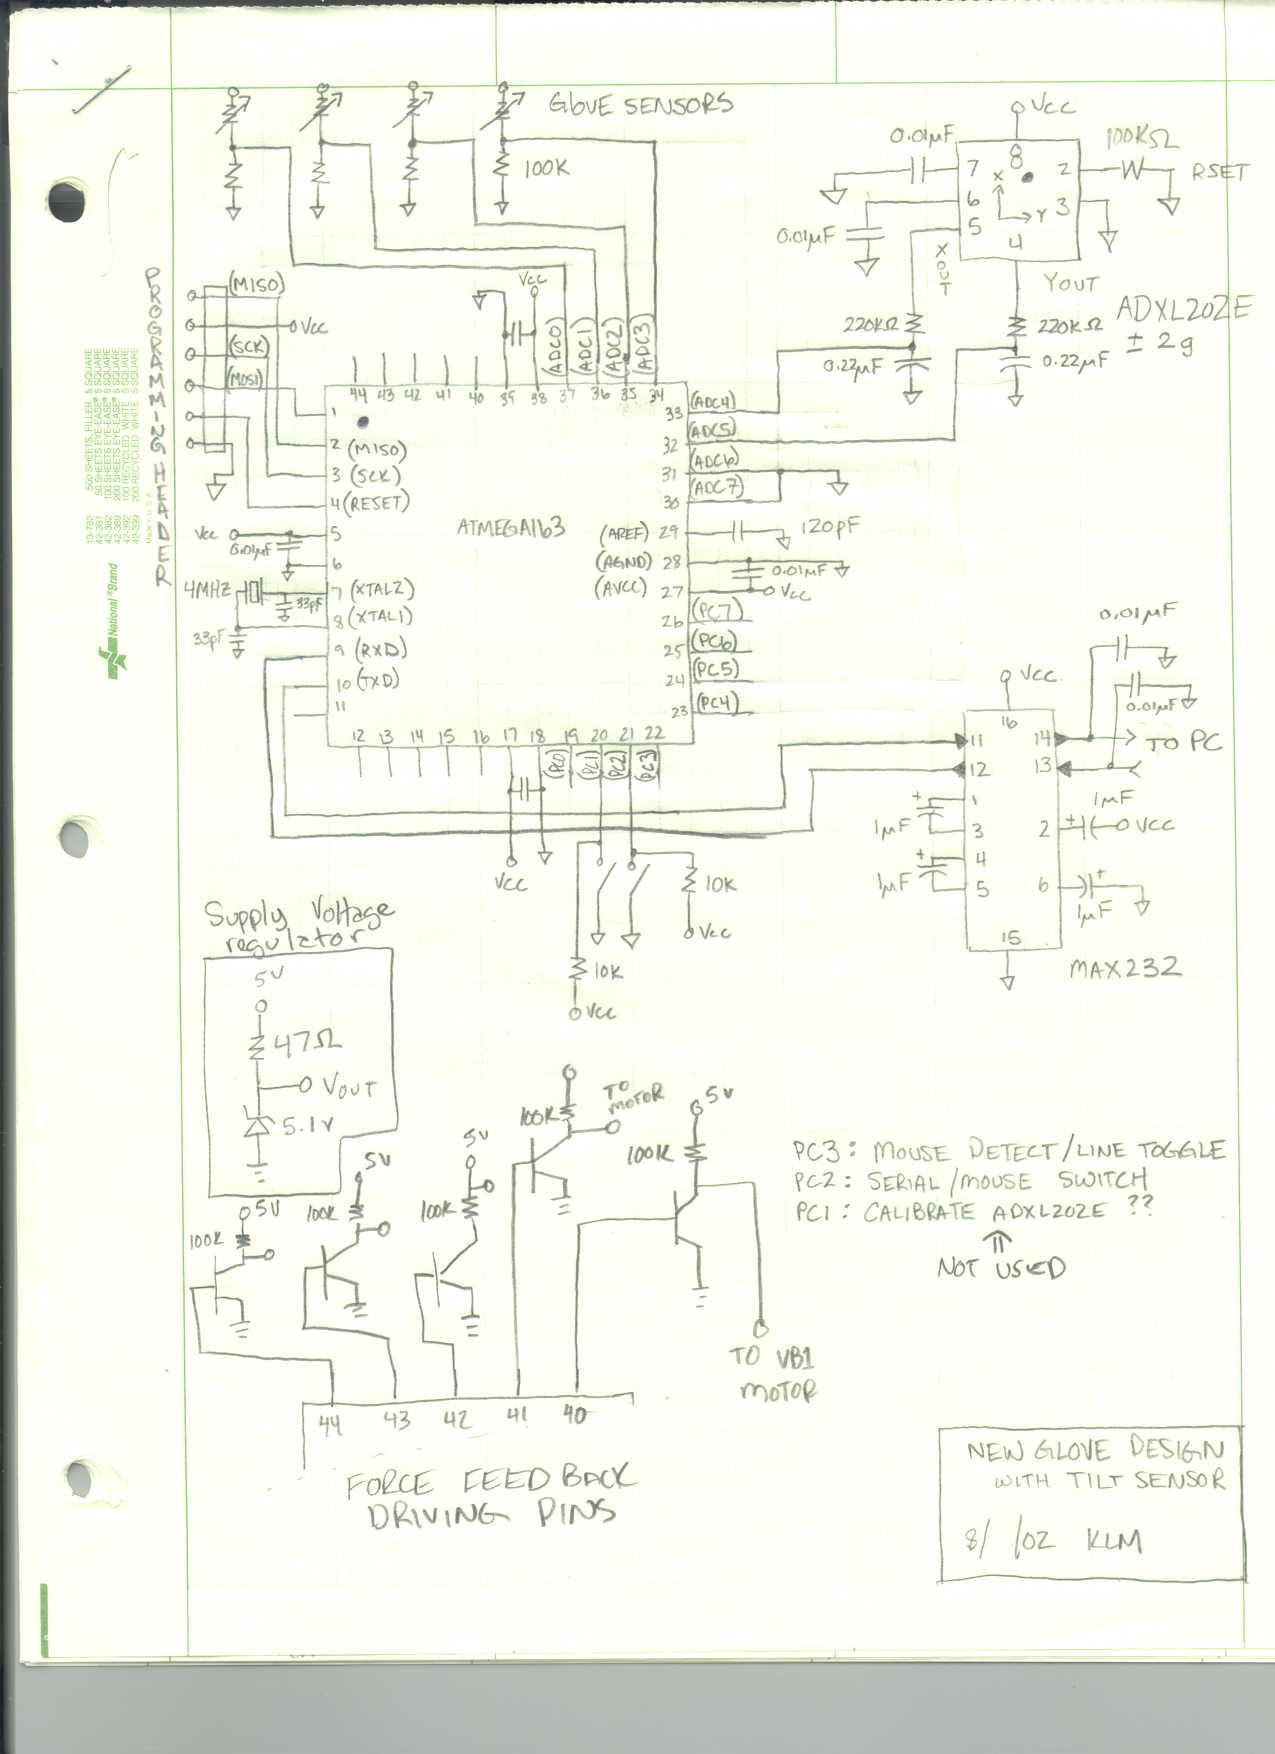 GLOVE SENSORS
100K
VCC
0.01µF
100KΩ
RSET
8
7
2
6
3
5
4
X
Y
0.01µF
XOUT
YOUT
ADXL202E
± 2g
220KΩ
220KΩ
0.22µF
0.22µF
PROGRAMMING HEADER
(MISO)
VCC
(SCK)
(MOSI)
VCC
(ADC0)
(ADC1)
(ADC2)
(ADC3)
44 43 42 41 40 39 38 37 36 35 34
1
2 (MISO)
3 (SCK)
4 (RESET)
5
6
7 (XTAL2)
8 (XTAL1)
9 (RXD)
10 (TXD)
11
VCC
0.01µF
4MHZ
33pF
33pF
ATMEGA163
33 (ADC4)
32 (ADC5)
31 (ADC6)
30 (ADC7)
(AREF) 29
120pF
(AGND) 28
0.01µF
(AVCC) 27
VCC
26 (PC7)
25 (PC6)
24 (PC5)
23 (PC4)
12 13 14 15 16 17 18 19 20 21 22
(PC0)
(PC1)
(PC2)
(PC3)
VCC
10K
VCC
10K
VCC
0.01µF
VCC
0.01µF
16
11 14
TO PC
12 13
1
1µF
3
2
1µF
+
VCC
4
5
6
1µF
+
1µF
+
15
MAX232
Supply Voltage
regulator
5V
47Ω
VOUT
5.1V
5V
100K
5V
100K
5V
100K
100K
TO
MOTOR
5V
100K
TO VB1
MOTOR
44 43 42 41 40
FORCE FEEDBACK
DRIVING PINS
PC3: MOUSE DETECT/LINE TOGGLE
PC2: SERIAL/MOUSE SWITCH
PC1: CALIBRATE ADXL202E ??
NOT USED
NEW GLOVE DESIGN
WITH TILT SENSOR
8/ /02 KLM
13-782 500 SHEETS, FILLER 5 SQUARE
42-381 50 SHEETS EYE-EASE® 5 SQUARE
42-382 100 SHEETS EYE-EASE® 5 SQUARE
42-389 200 SHEETS EYE-EASE® 5 SQUARE
42-392 100 RECYCLED WHITE 5 SQUARE
42-399 200 RECYCLED WHITE 5 SQUARE
Made in U.S.A.
National® Brand